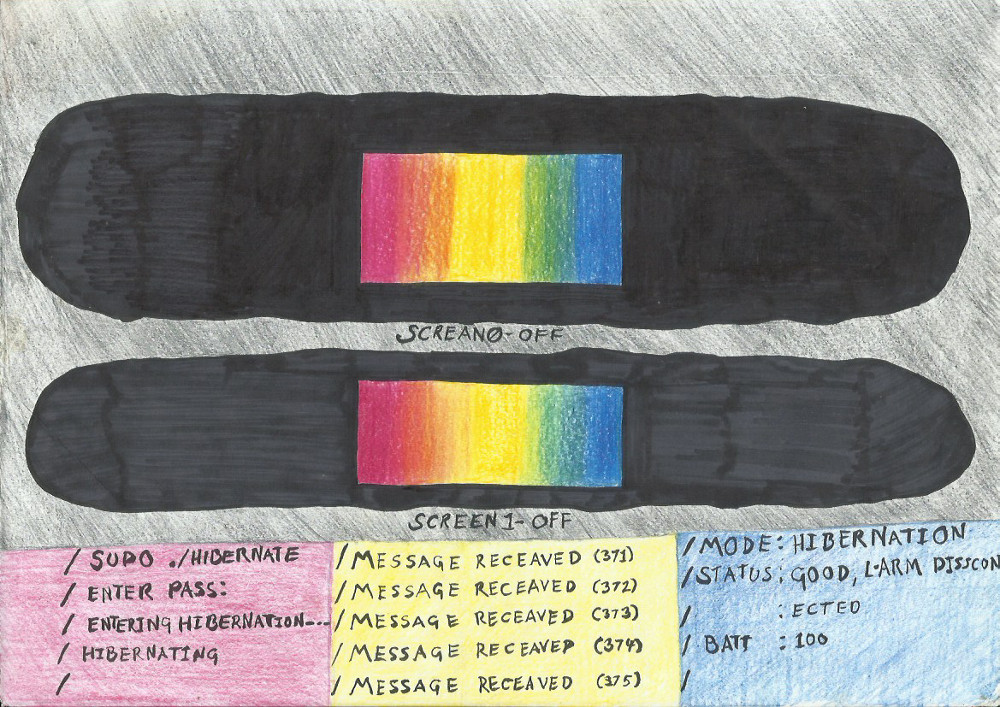 SCREAN0-OFF
SCREEN1-OFF
/ SUDO ./HIBERNATE
/ ENTER PASS:
/ ENTERING HIBERNATION...
/ HIBERNATING
/
/MESSAGE RECEAVED (371)
/MESSAGE RECEAVED (372)
/MESSAGE RECEAVED (373)
/MESSAGE RECEAVED (374)
/MESSAGE RECEAVED (375)
/MODE: HIBERNATION
/STATUS: GOOD, L-ARM DISSCON
/ : ECTED
/ BATT : 100
/